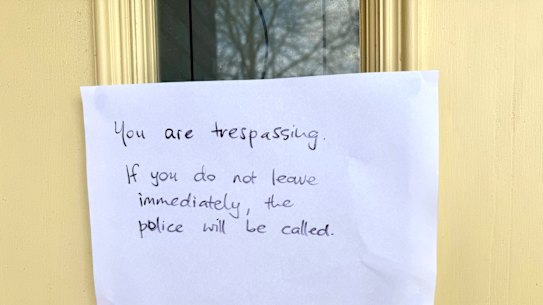 You are trespassing.
If you do not leave
immediately, the
police will be called.